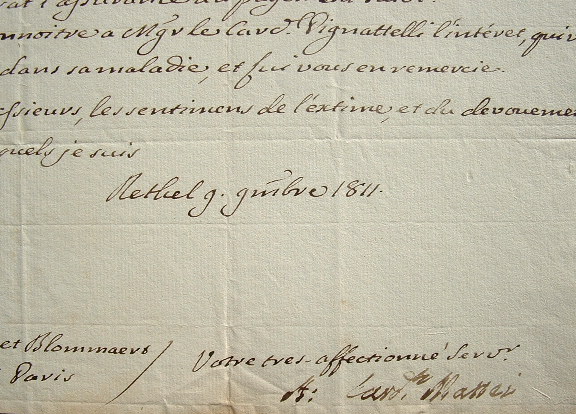 onnoitre a Mgr. le Card. Pignattelli l'intéret, qui
dans sa maladie, et fui vous en remercie.
essieurs, les sentimens de l'extime, et du devouemen
quels je suis
Rethel 9. 9mbre 1811.
et Blommaert
Paris
Votre tres-affectionné Servr.
A: Card. Mattei